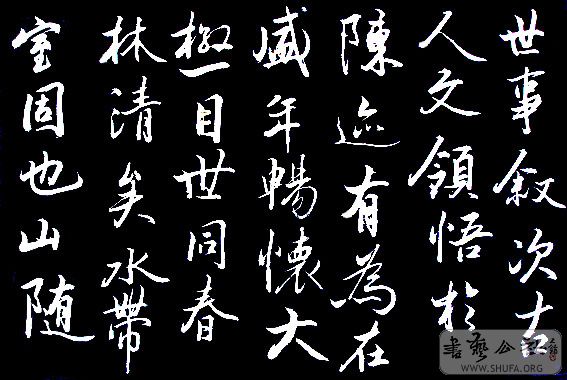 世事叙次古
人文領悟於
陳迹有為在
盛年暢懷大
極目世同春
林清矣水帶
室固也山随
書藝公社
WWW.SHUFA.ORG